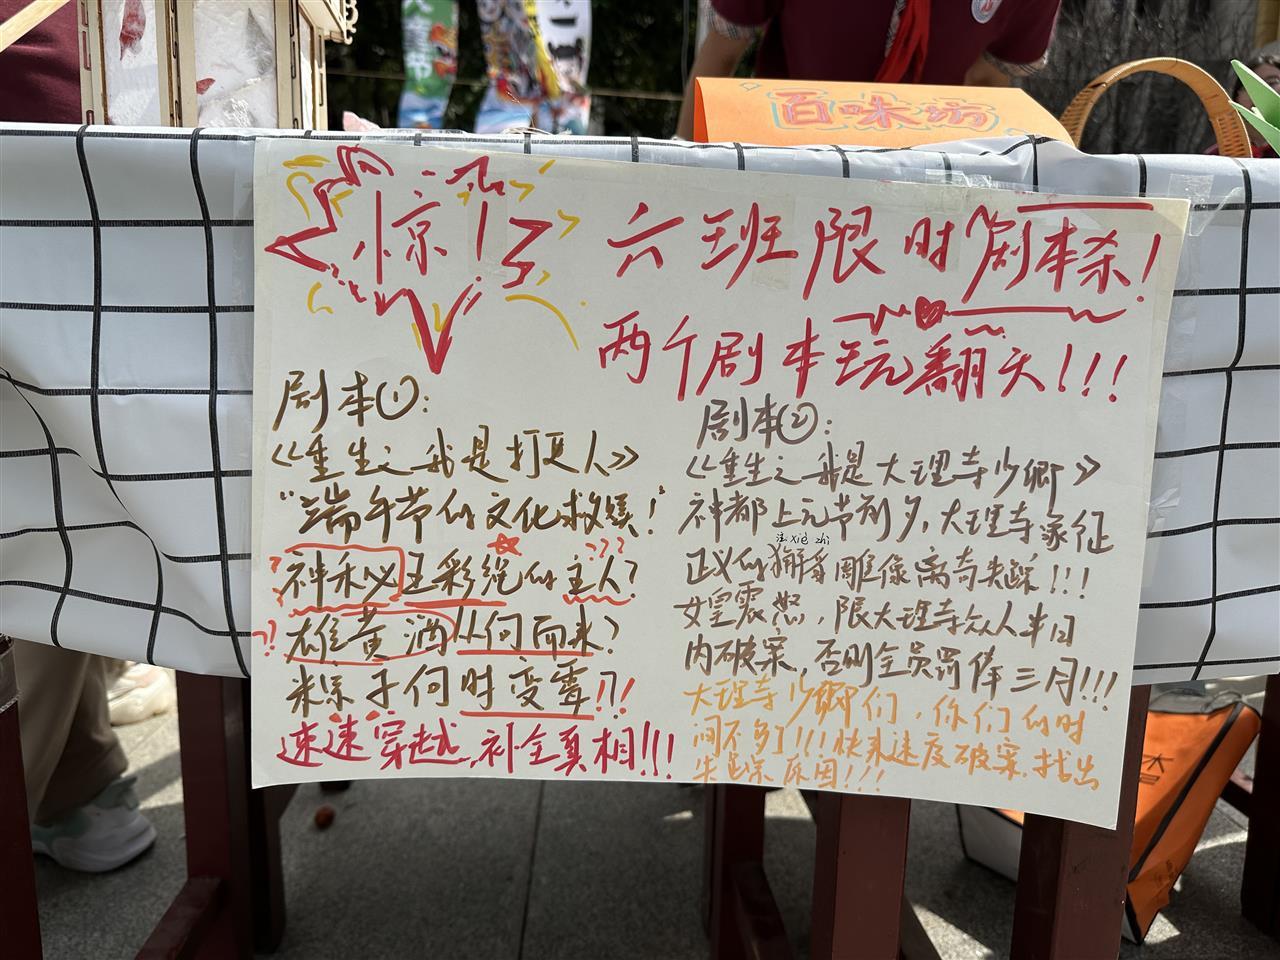 百味坊
惊!
六班限时剧本杀!
两个剧本玩翻天!!!
剧本①:
《重生之我是打更人》
“端午节的文化救赎!
神秘五彩绳的主人?
???
雄黄酒从何而来?
粽子何时变霉!?!
速速穿越,补全真相!!!
剧本②:
《重生之我是大理寺少卿》
神都上元节前夕,大理寺象征
法 xiè zhì
正义的獬豸雕像离奇失踪!!!
女皇震怒,限大理寺众人半日
内破案,否则全员罚俸三月!!!
大理寺少卿们,你们的时
间不多了!!!快来速度破案,找出
失踪原因!!!